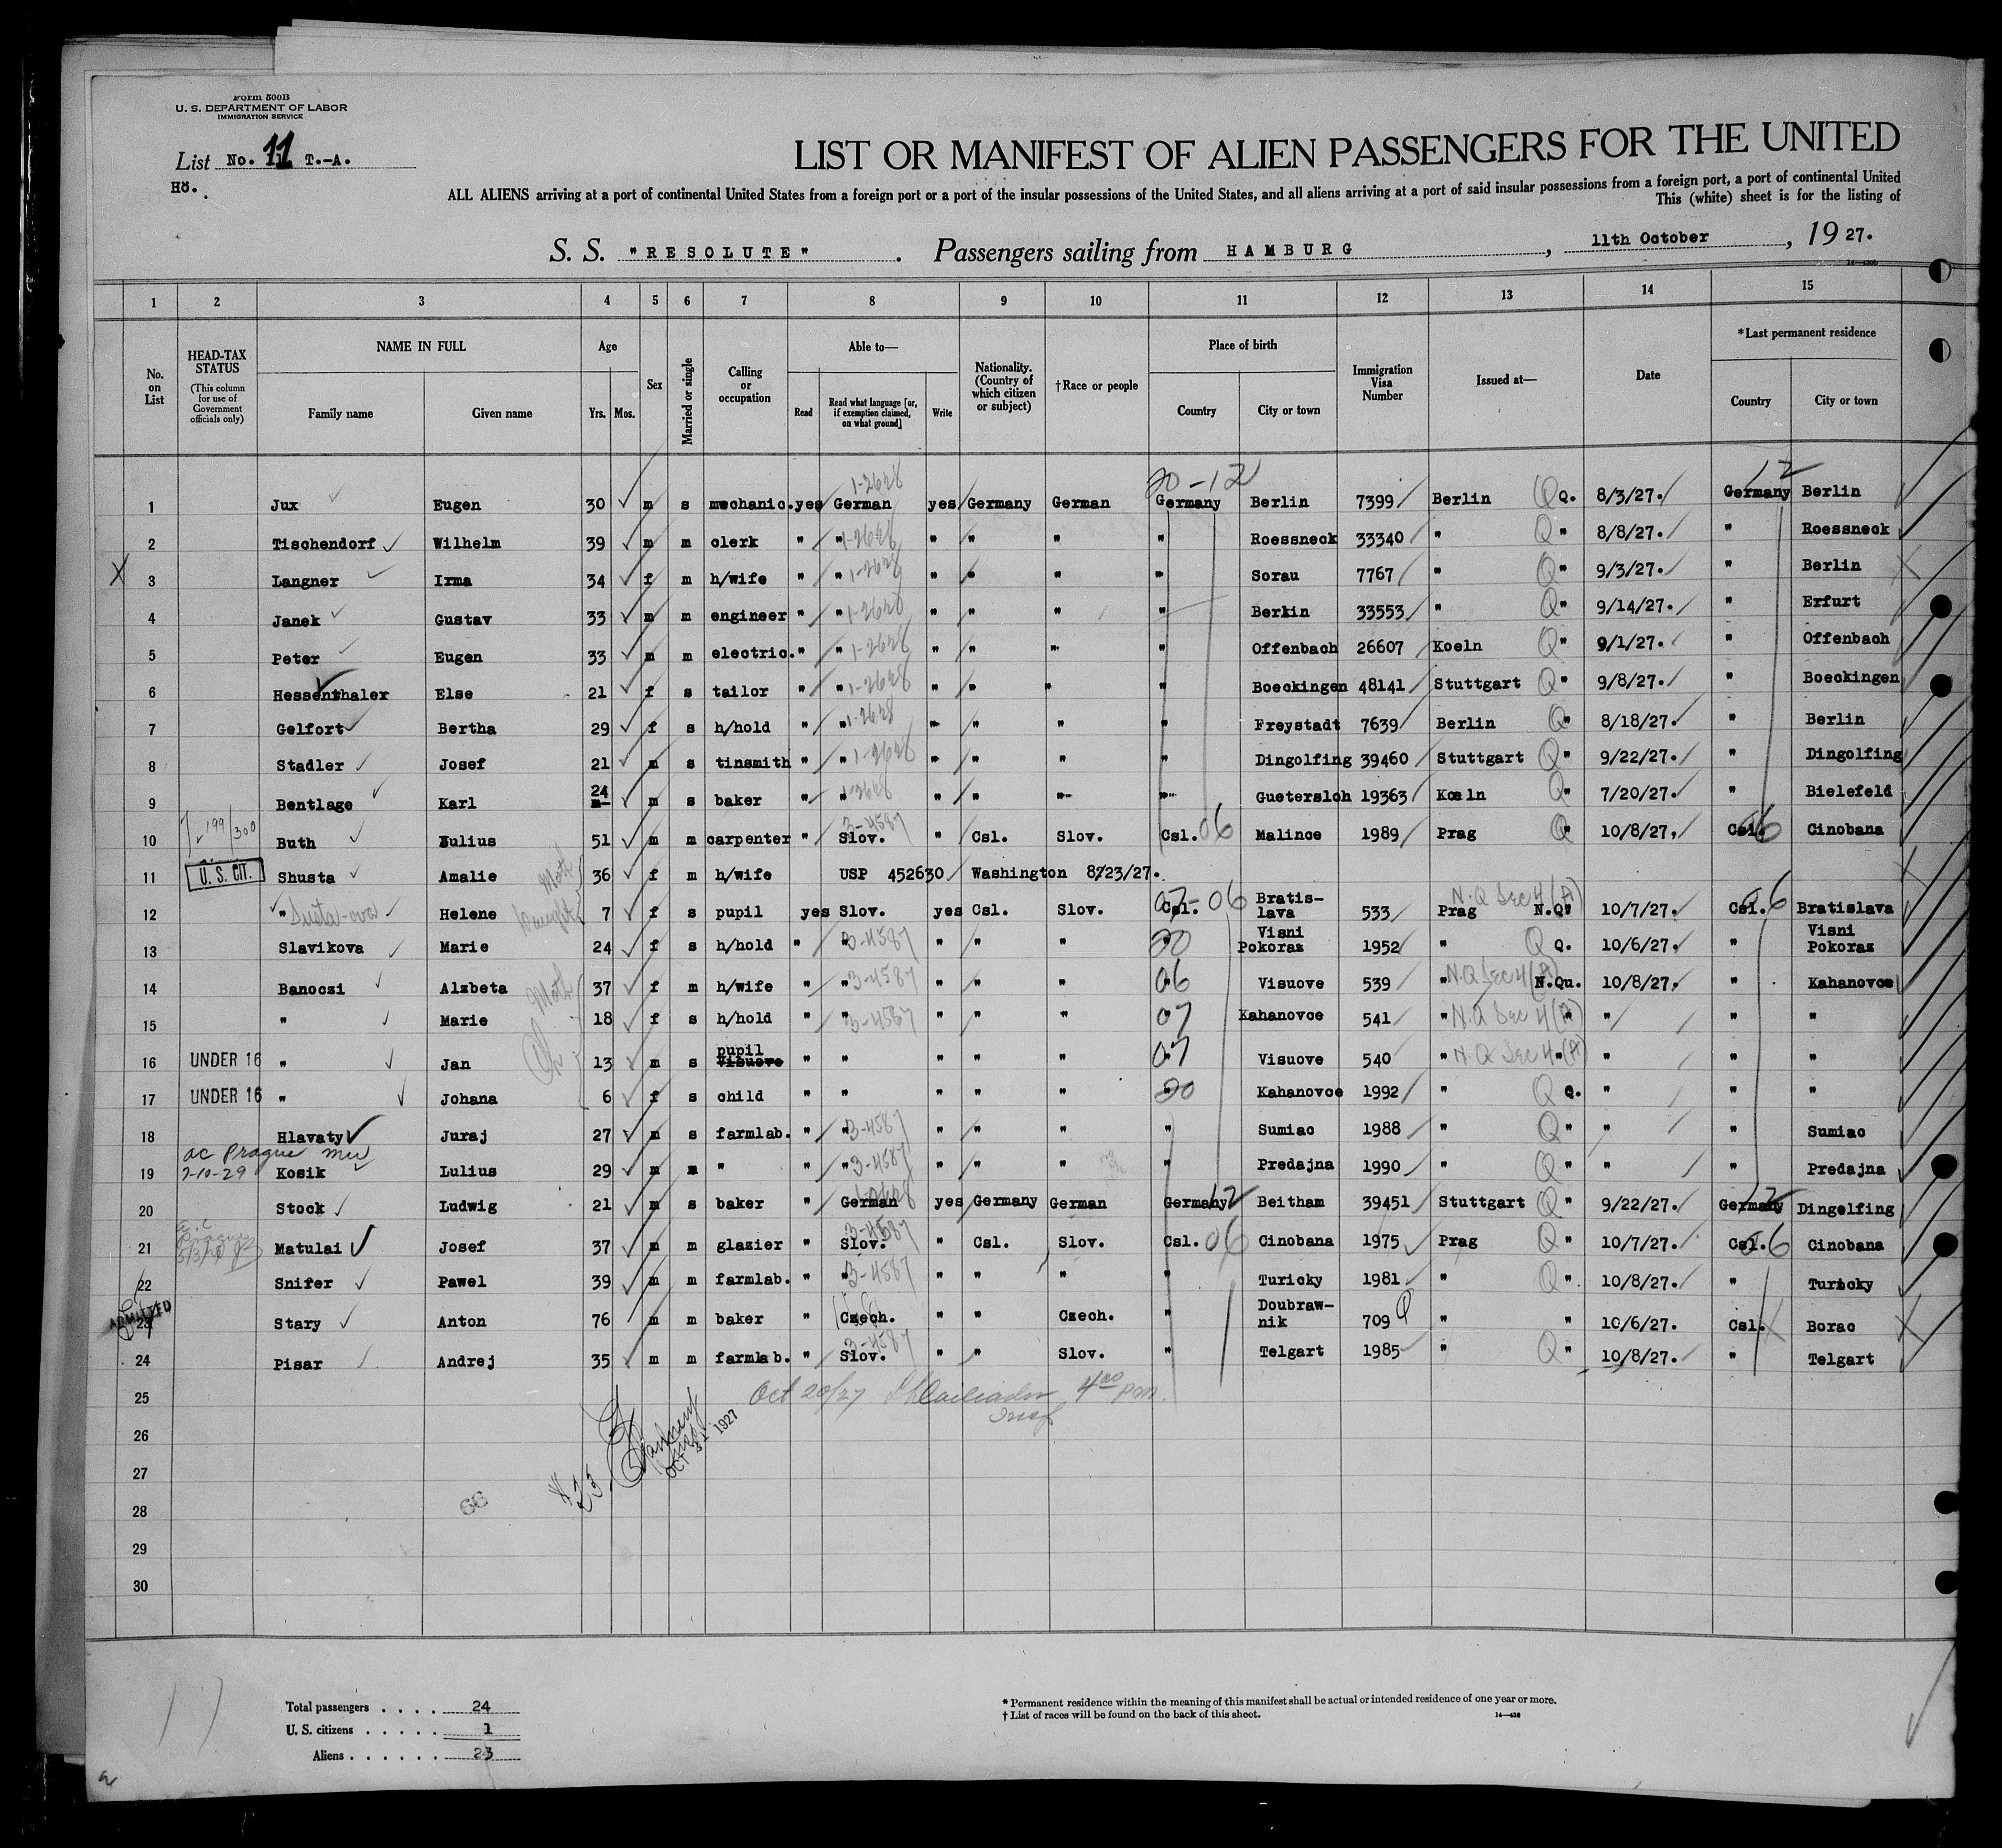 Form 500B
U. S. DEPARTMENT OF LABOR
IMMIGRATION SERVICE
List No. 11 T.-A.
Hö.
LIST OR MANIFEST OF ALIEN PASSENGERS FOR THE UNITED
ALL ALIENS arriving at a port of continental United States from a foreign port or a port of the insular possessions of the United States, and all aliens arriving at a port of said insular possessions from a foreign port, a port of continental United
This (white) sheet is for the listing of
S. S. "RESOLUTE" . Passengers sailing from HAMBURG , 11th October , 19 27.
1 2 3 4 5 6 7 8 9 10 11 12 13 14 15
No. on List
HEAD-TAX STATUS
(This column for use of Government officials only)
NAME IN FULL
Family name Given name
Age
Yrs. Mos.
Sex
Married or single
Calling or occupation
Able to—
Read
Read what language [or, if exemption claimed, on what ground]
Write
Nationality. (Country of which citizen or subject)
†Race or people
Place of birth
Country City or town
Immigration Visa Number
Issued at—
Date
*Last permanent residence
Country City or town
20-12 12
1 Jux Eugen 30 m s mechanic. yes German 1-2628 yes Germany German Germany Berlin 7399 Berlin Q Q. 8/3/27. Germany Berlin
2 Tischendorf Wilhelm 39 m m clerk " " 1-2628 " " " " Roessneck 33340 " Q " 8/8/27. " Roessneck
X 3 Langner Irma 34 f m h/wife " " 1-2628 " " " " Sorau 7767 " Q " 9/3/27. " Berlin
4 Janek Gustav 33 m m engineer " " 1-2628 " " " " Berkin 33553 " Q " 9/14/27. " Erfurt
5 Peter Eugen 33 m m electric. " " 1-2628 " " " " Offenbach 26607 Koeln Q " 9/1/27. " Offenbach
6 Hessenthaler Else 21 f s tailor " " 1-2628 " " " " Boeckingen 48141 Stuttgart Q " 9/8/27. " Boeckingen
7 Gelfort Bertha 29 f s h/hold " " 1-2628 " " " " Freystadt 7639 Berlin Q " 8/18/27. " Berlin
8 Stadler Josef 21 m s tinsmith " " 1-2628 " " " " Dingolfing 39460 Stuttgart Q " 9/22/27. " Dingolfing
9 Bentlage Karl 24 m s baker " " 1-2628 " " " " Guetersloh 19363 Koeln Q " 7/20/27. " Bielefeld
199/300 10 Buth Julius 51 m m carpenter " Slov. 3-4587 " Csl. Slov. Csl. 06 Malince 1989 Prag Q " 10/8/27. Csl. 06 Cinobana
11 U. S. CIT. Shusta Amalie Moth 36 f m h/wife USP 452630 Washington 8/23/27.
12 " Susta-ova Helene Daught 7 f s pupil yes Slov. yes Csl. Slov. Csl. 07-06 Bratis-lava 533 Prag N.Q Sec 4 (A) N.Q. 10/7/27. Csl. 06 Bratislava
13 Slavikova Marie 24 f s h/hold " " 3-4587 " " " " 20 Visni Pokoraz 1952 " Q Q. 10/6/27. " Visni Pokoraz
14 Banoczi Alzbeta Moth 37 f m h/wife " " 3-4587 " " " " 06 Visuove 539 " N.Q Sec 4 (A) N.Qu. 10/8/27. " Kahanovce
15 " Marie Ch 18 f s h/hold " " 3-4587 " " " " 07 Kahanovce 541 " N.Q Sec 4 (A) " " " "
16 UNDER 16 " Jan 13 m s pupil Visuove " " " " " " 07 Visuove 540 " N.Q Sec 4 (A) " " " "
17 UNDER 16 " Johana 6 f s child " " " " " " 20 Kahanovce 1992 " Q Q. " " "
18 Hlavaty Juraj 27 m s farmlab. " " 3-4587 " " " " Sumiac 1988 " Q " " " Sumiac
ac Prague
19 2-10-29 Kosik Lulius 29 m m " " " 3-4587 " " " " Predajna 1990 " Q " " " Predajna
20 Stock Ludwig 21 m s baker " German 1-2628 yes Germany German Germany 12 Beitham 39451 Stuttgart Q " 9/22/27. Germany 12 Dingelfing
21 Matulai Josef 37 m m glazier " Slov. 3-4587 " Csl. Slov. Csl. 06 Cinobana 1975 Prag Q " 10/7/27. Csl. 06 Cinobana
22 Snifer Pawel 39 m m farmlab. " " 3-4587 " " " " Turicky 1981 " Q " 10/8/27. " Turicky
ADMITTED
23 Stary Anton 76 m m baker " Czech. " " Czech. " Doubraw-nik 709 Q " " 10/6/27. Csl. Borac
24 Pisar Andrej 35 m m farmlab. " Slov. 3-4587 " " Slov. " Telgart 1985 " Q " 10/8/27. " Telgart
25 Oct 20/27 4 00 pm.
Insp
26
OCT 1927
27
28 66
29
30
Total passengers . . . . 24
U. S. citizens . . . . . 1
Aliens . . . . . . 23
* Permanent residence within the meaning of this manifest shall be actual or intended residence of one year or more.
† List of races will be found on the back of this sheet.